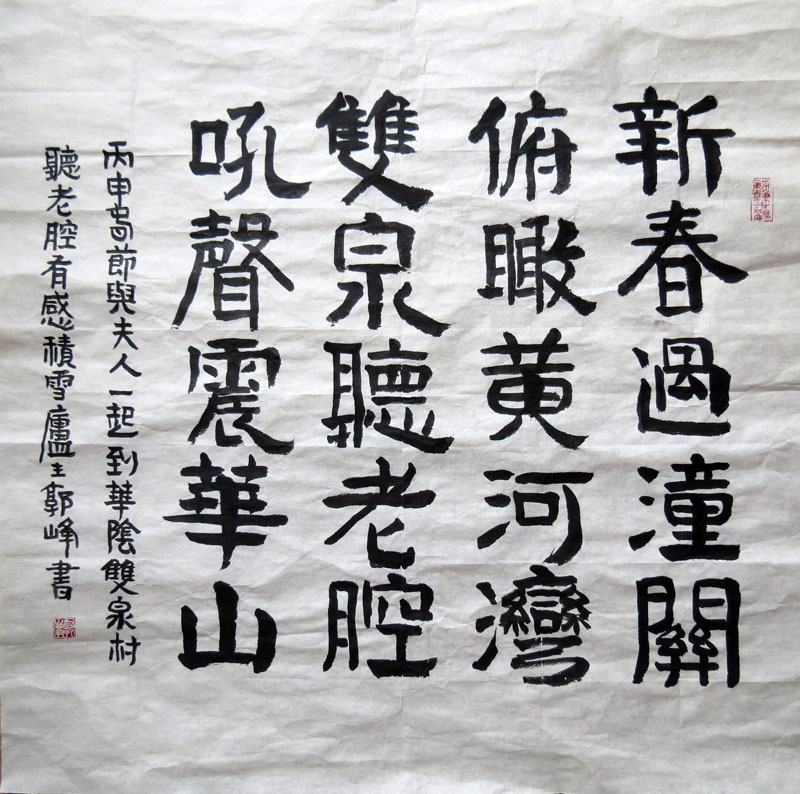 新春過潼關
俯瞰黄河灣
雙泉聽老腔
吼聲震華山
丙申春節與夫人一起到華陰雙泉村
聽老腔有感積雪廬主郭峰書